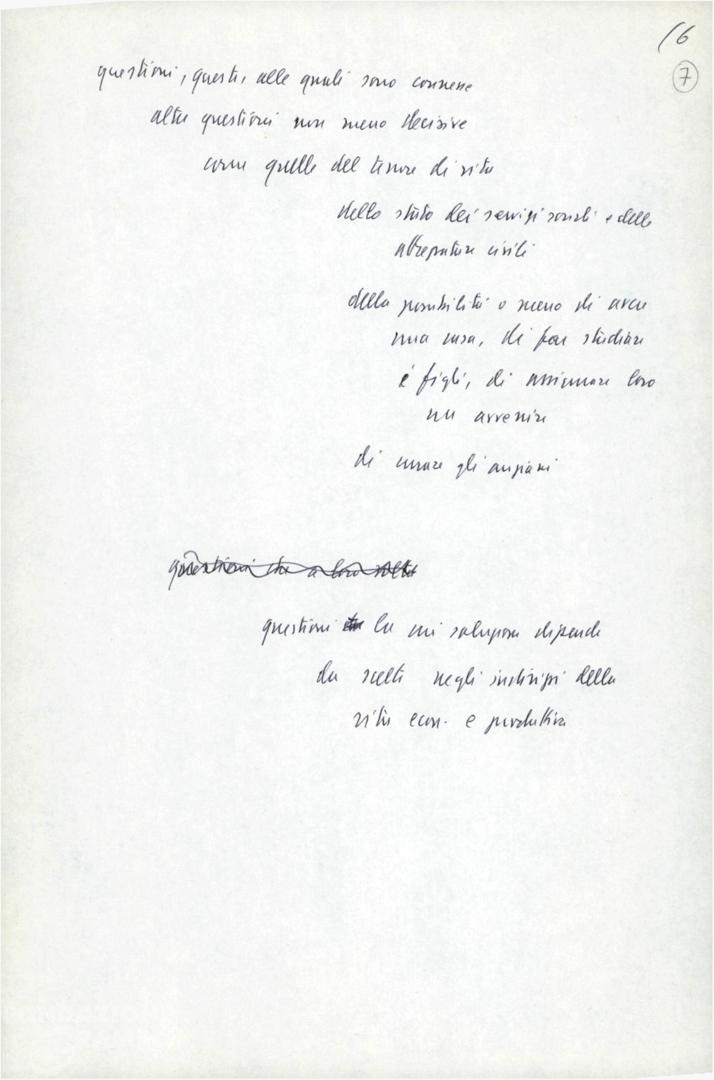 16
7
questioni, queste, alle quali sono connesse
altre questioni non meno decisive
come quelle del tenore di vita
dello stato dei servizi sociali e delle
attrezzature civili
della possibilità o meno di avere
una casa, di far studiare
i figli, di assicurare loro
un avvenire
di curare gli anziani
questioni che a loro volta
questioni la cui soluzione dipende
da scelte negli indirizzi della
vita econ. e produttiva